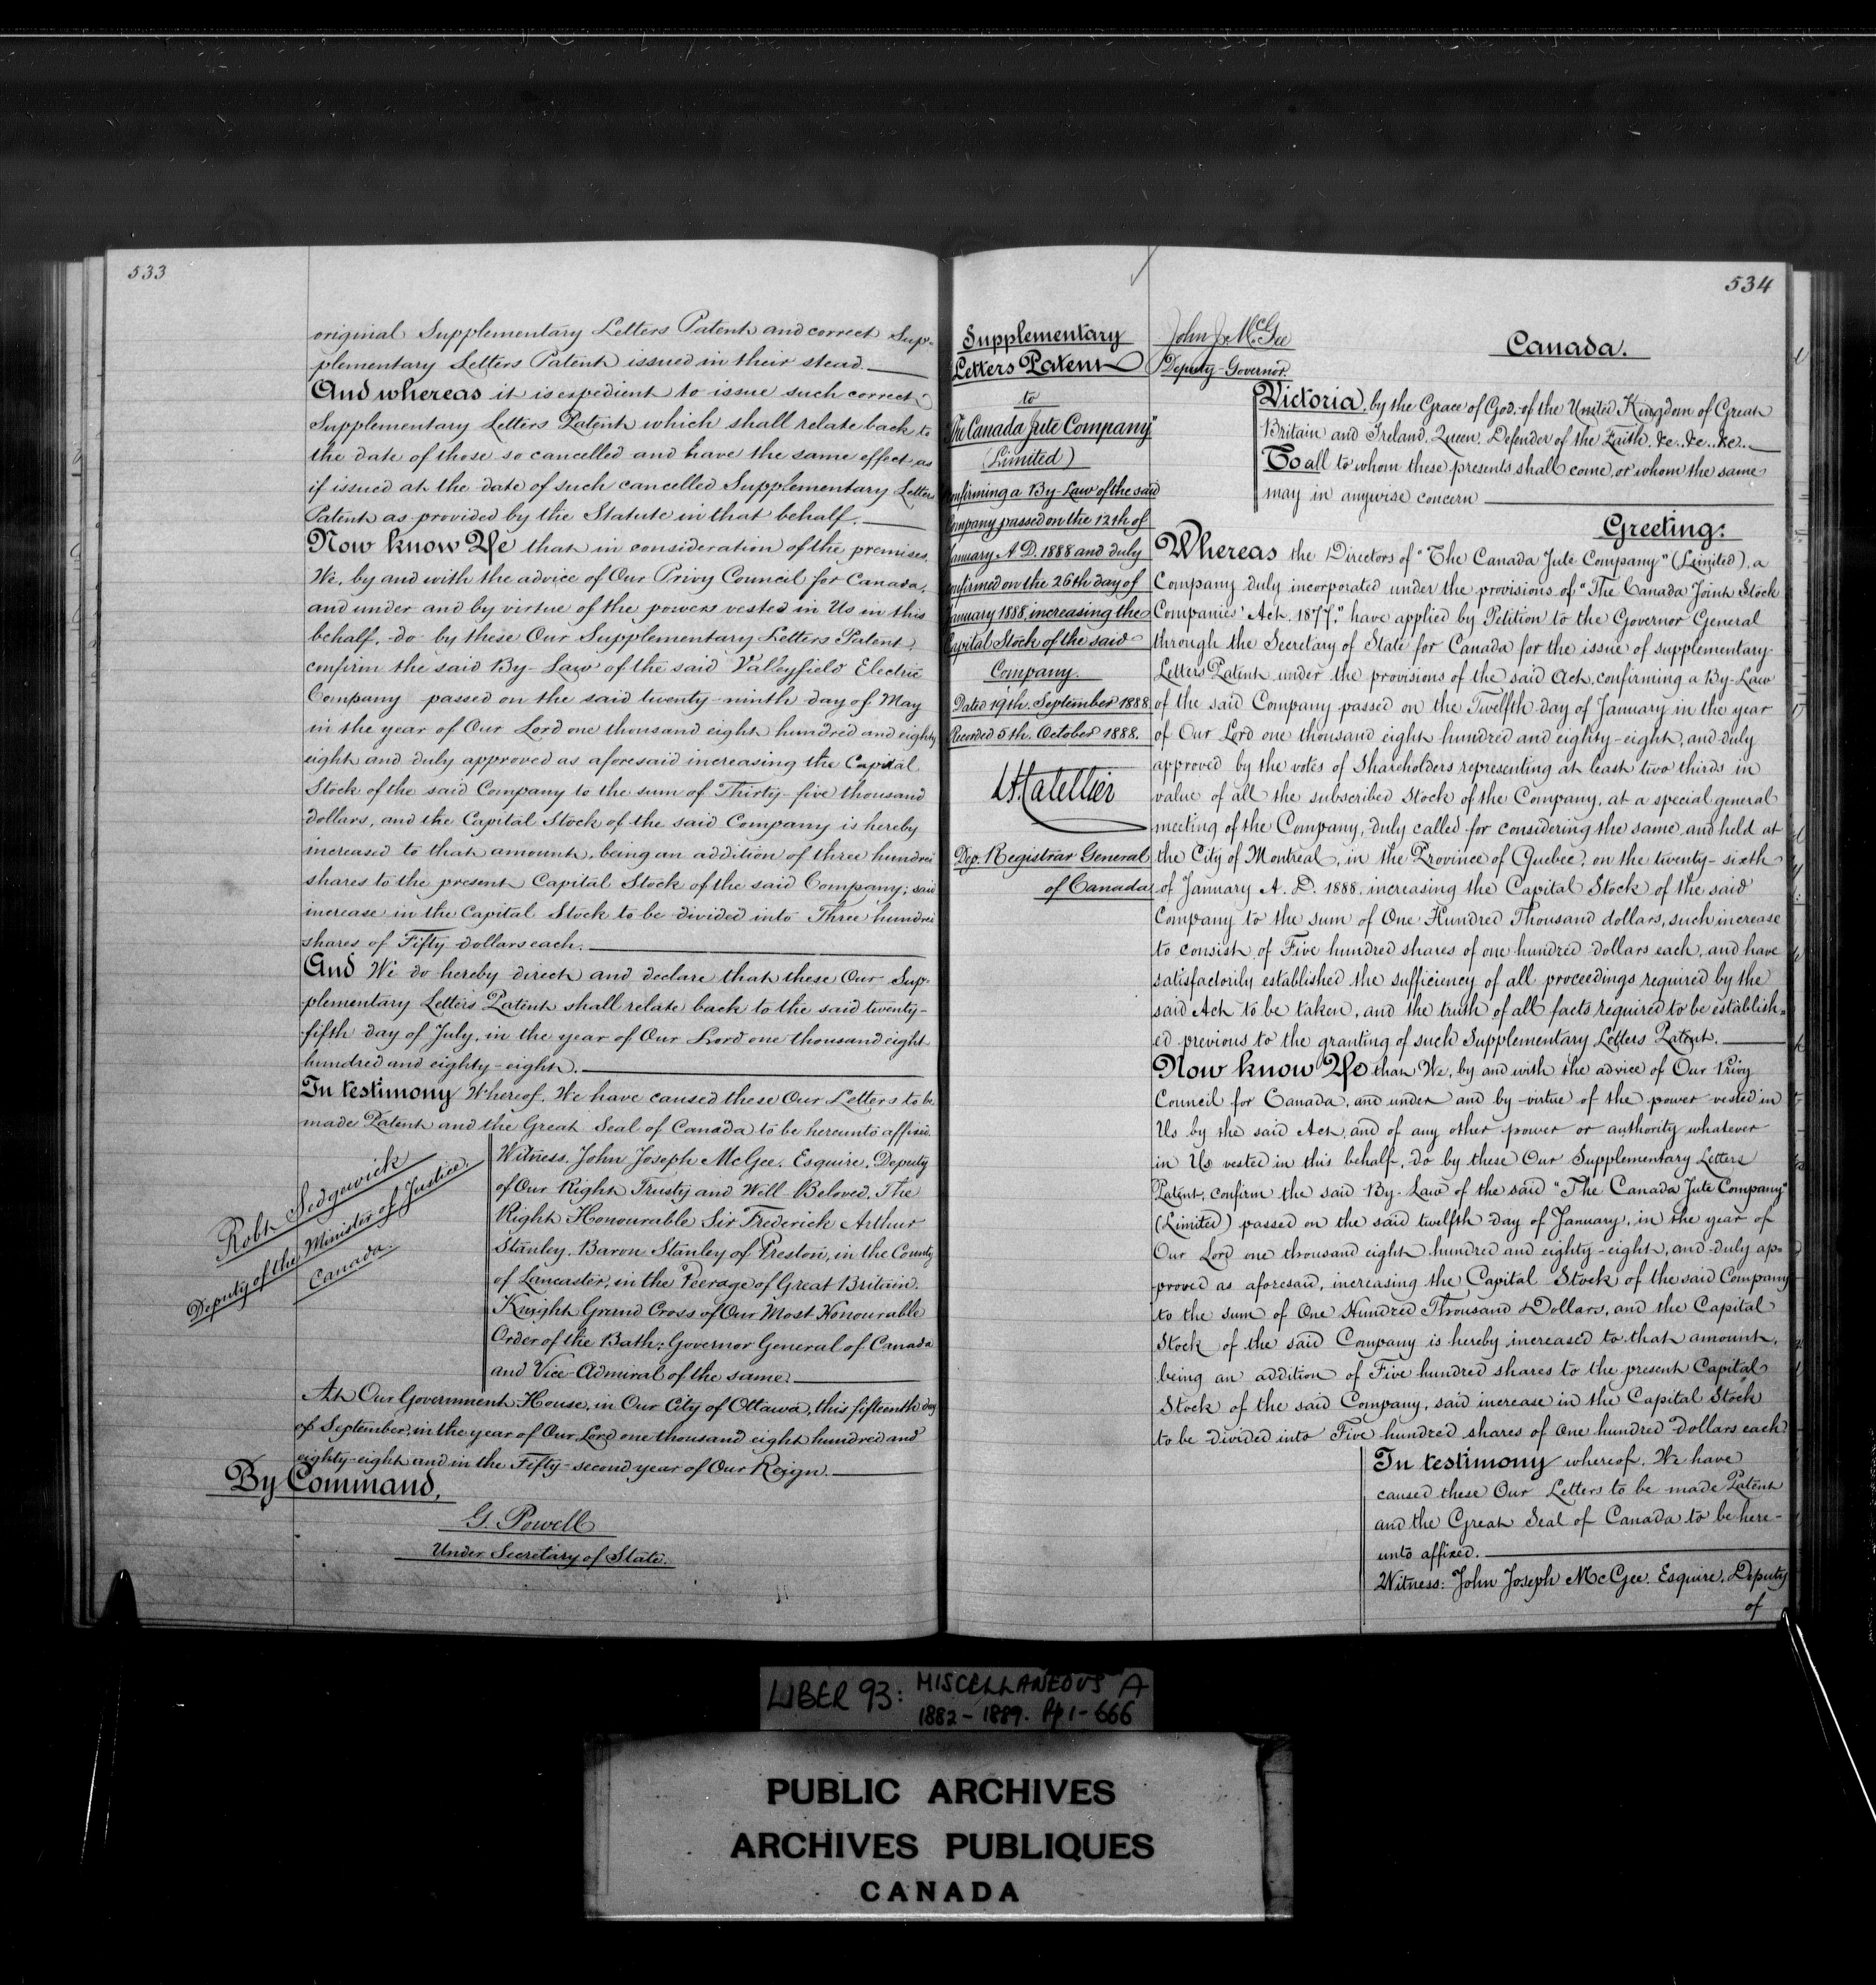 533
original Supplementary Letters Patent and correct Sup-
plementary Letters Patent issued in their stead.
And whereas it is expedient to issue such correct
Supplementary Letters Patent which shall relate back to
the date of those so cancelled and have the same effect as
if issued at the date of such cancelled Supplementary Letters
Patent as provided by the Statute in that behalf.
Now know Ye that in consideration of the premises,
We, by and with the advice of Our Privy Council for Canada,
and under and by virtue of the powers vested in Us in this
behalf, do by these Our Supplementary Letters Patent,
confirm the said By-Law of the said Valleyfield Electric
Company passed on the said twenty-ninth day of May
in the year of Our Lord one thousand eight hundred and eighty
eight and duly approved as aforesaid increasing the Capital
Stock of the said Company to the sum of Thirty-five thousand
dollars, and the Capital Stock of the said Company is hereby
increased to that amount, being an addition of three hundred
shares to the present Capital Stock of the said Company; said
increase in the Capital Stock to be divided into Three hundred
shares of Fifty dollars each.
And We do hereby direct and declare that these Our Sup-
plementary Letters Patent shall relate back to the said twenty-
fifth day of July, in the year of Our Lord one thousand eight
hundred and eighty-eight.
In testimony Whereof, We have caused these Our Letters to be
made Patent and the Great Seal of Canada to be hereunto affixed.
Robt Sedgewick
Deputy of the Minister of Justice.
Canada.
Witness, John Joseph McGee, Esquire, Deputy
of Our Right Trusty and Well-Beloved, The
Right Honourable Sir Frederick Arthur
Stanley, Baron Stanley of Preston, in the County
of Lancaster, in the Peerage of Great Britain,
Knight Grand Cross of Our Most Honourable
Order of the Bath; Governor General of Canada
and Vice-Admiral of the same.
At Our Government House, in Our City of Ottawa, this fifteenth day
of September, in the year of Our Lord one thousand eight hundred and
eighty-eight and in the Fifty-second year of Our Reign.
By Command,
G. Powell
Under Secretary of State.
534
Supplementary
Letters Patent
to
"The Canada Jute Company"
(Limited)
confirming a By-Law of the said
Company passed on the 12th of
January A.D. 1888 and duly
confirmed on the 26th day of
January 1888 increasing the
Capital Stock of the said
Company.
Dated 19th September 1888
Recorded 5th October 1888.
Dep. Registrar General
of Canada
John J. McGee
Deputy-Governor.
Canada.
Victoria, by the Grace of God, of the United Kingdom of Great
Britain and Ireland, Queen, Defender of the Faith, &c., &c., &c.
To all to whom these presents shall come, or whom the same
may in anywise concern
Greeting:
Whereas the Directors of "The Canada Jute Company" (Limited), a
Company duly incorporated under the provisions of "The Canada Joint Stock
Companies' Act, 1877," have applied by Petition to the Governor General
through the Secretary of State for Canada for the issue of supplementary
Letters Patent under the provisions of the said Act, confirming a By-Law
of the said Company passed on the Twelfth day of January in the year
of Our Lord one thousand eight hundred and eighty-eight, and duly
approved by the votes of Shareholders representing at least two thirds in
value of all the subscribed Stock of the Company, at a special general
meeting of the Company, duly called for considering the same, and held at
the City of Montreal, in the Province of Quebec, on the twenty-sixth
of January A.D. 1888, increasing the Capital Stock of the said
Company to the sum of One Hundred Thousand dollars, such increase
to consist of Five hundred shares of one hundred dollars each, and have
satisfactorily established the sufficiency of all proceedings required by the
said Act to be taken, and the truth of all facts required to be establish-
ed previous to the granting of such Supplementary Letters Patent.
Now know Ye that We, by and with the advice of Our Privy
Council for Canada, and under and by virtue of the power vested in
Us by the said Act, and of any other power or authority whatever
in Us vested in this behalf, do by these Our Supplementary Letters
Patent, confirm the said By-Law of the said "The Canada Jute Company"
(Limited) passed on the said twelfth day of January, in the year of
Our Lord one thousand eight hundred and eighty-eight, and duly ap-
proved as aforesaid, increasing the Capital Stock of the said Company
to the sum of One Hundred Thousand Dollars, and the Capital
Stock of the said Company is hereby increased to that amount,
being an addition of Five hundred shares to the present Capital
Stock of the said Company, said increase in the Capital Stock
to be divided into Five hundred shares of One hundred Dollars each
In testimony whereof, We have
caused these Our Letters to be made Patent
and the Great Seal of Canada to be here-
unto affixed.
Witness: John Joseph McGee, Esquire, Deputy
of
LIBER 93: MISCELLANEOUS A
1882-1889. Pp 1-666
PUBLIC ARCHIVES
ARCHIVES PUBLIQUES
CANADA